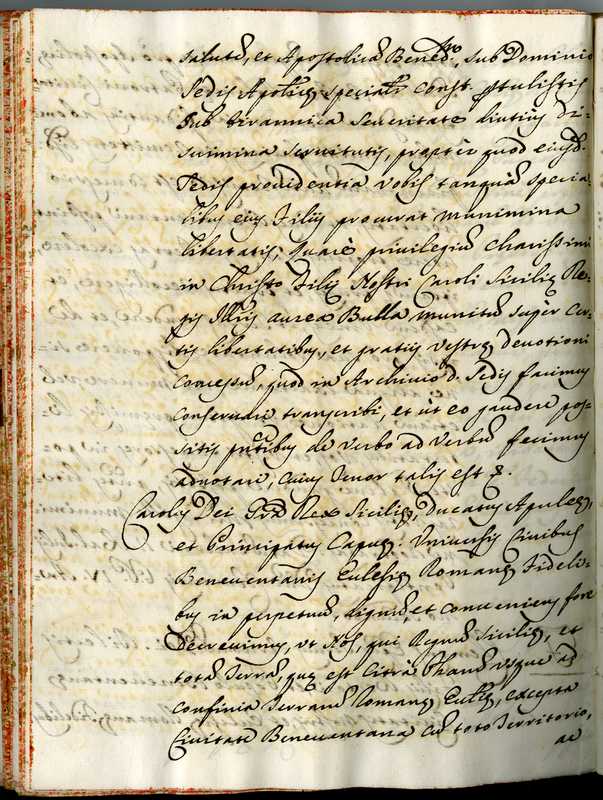 salutē, et Apostolicā Bened.ne, sub Dominio
Sedis Apōlicę speciali const. ptulistis
sub tirannica severitate diutius di-
scrimina servitutis, propter quod eiusd.
Sedis providentia vobis tanquā specia-
libus eius Filiis procurat munimina
libertatis, Quare privilegiū Charissimi
in Christo Filij Nostri Caroli Sicilię Re-
gis Illius aurea Bulla munitū super cer-
tis libertatibus, et gratiis vestrę devotioni
concessū, quod in Archivio d. Sedis facimus
conservari transcribi, et ut eo gaudere pos-
sitis pñtibus de verbo ad verbū fecimus
adnotari, cuius tenor talis est &.
Carolus Dei Grā Rex Sicilię, Ducatus Apulię,
et Principatus Capuę. Universis Civibus
Beneventanis Eclesię Romanę Fideli-
bus in perpetuū, dignū, et conveniens fore
Decrevimus, ut Nos, qui Regnū Sicilię, et
totā Terrā, quę est Citra Pharū usque ad
confinia Terrarū Romanę Eccl.ię, excepta
Civitate Beneventana cū toto Territorio,
ac